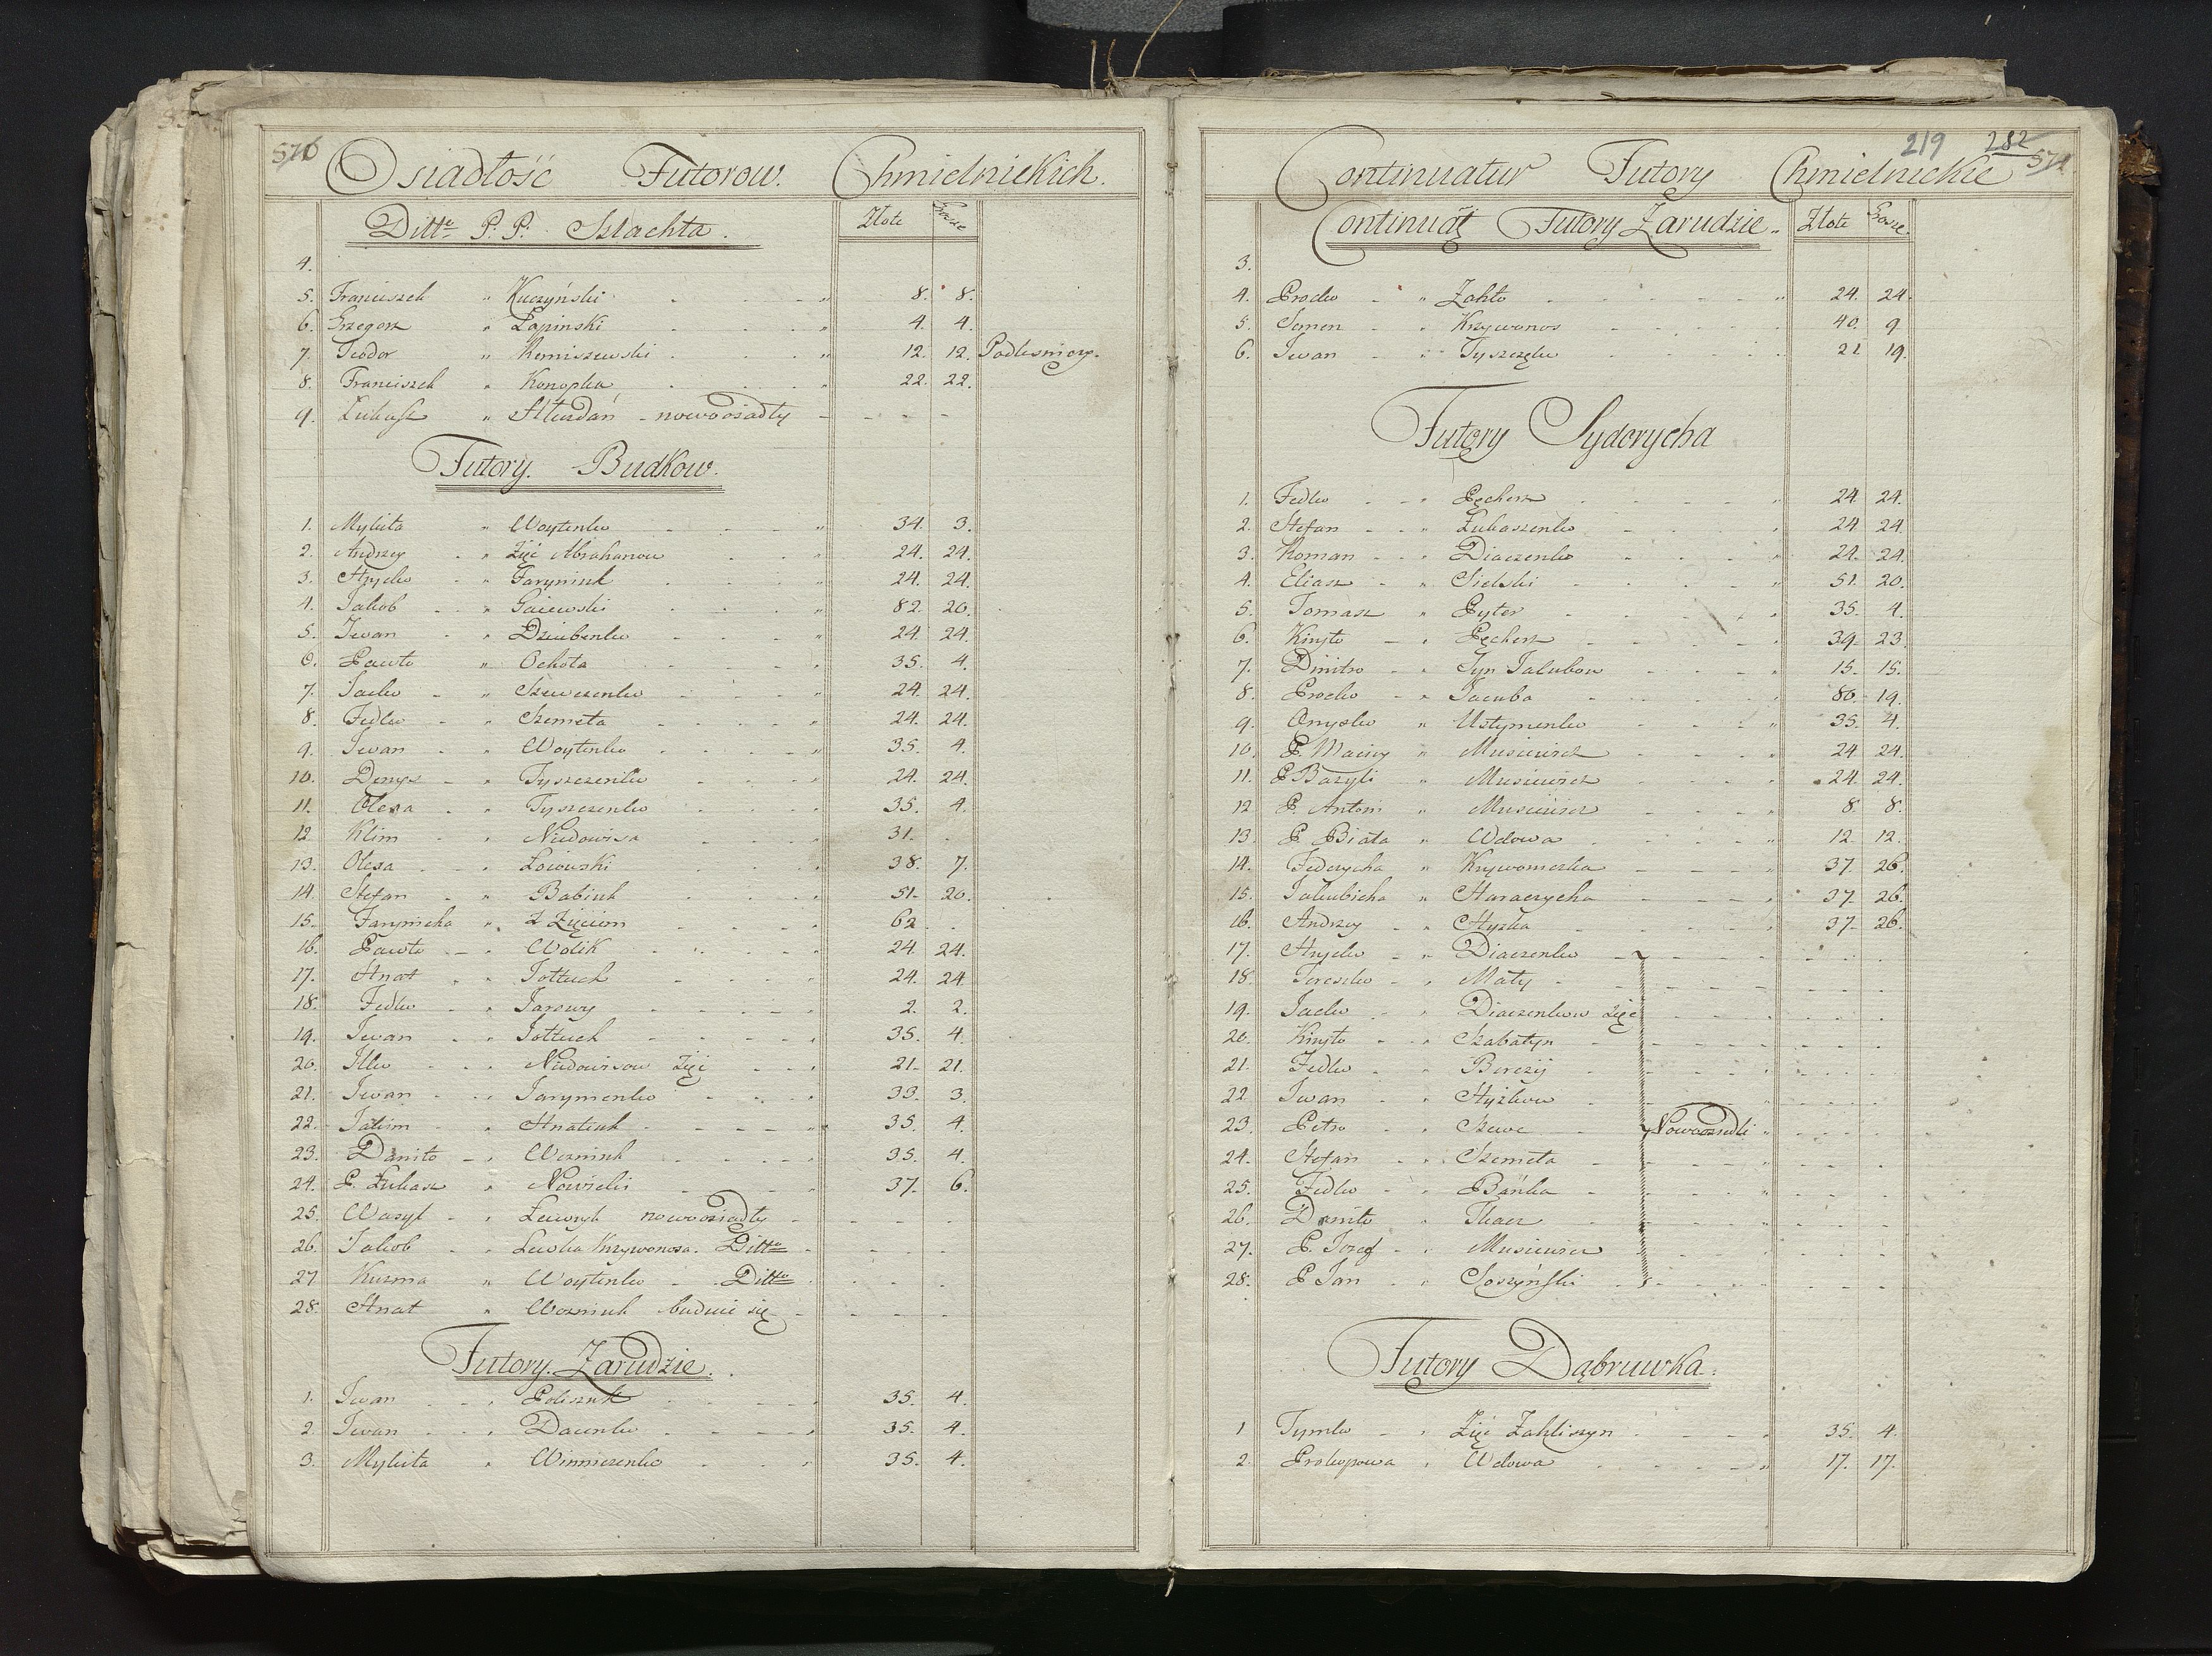 576
Osiadłość Futorow. Chmielnickich.
Ditto P. P. Szlachta. Złote Grosze
4.
5. Franciszek " Kuczyński " 8. 8.
6. Grzegorz " Łapinski " 4. 4.
7. Teodor " Remiszewski " 12. 12. Podlesniczy.
8. Franciszek " Konopka " 22. 22.
9. Łukasz " nowoosiadły
Futory. Budkow.
1. Mykita " Woytenko " 34. 3.
2. Andrzey " Zięć Abrahamow 24. 24.
3. Hryćko " Jaryniuk 24. 24.
4. Jakob " Gaiewski " 82. 20.
5. Iwan " Dziubenko " 24. 24.
6. Pawło " Ochota " 35. 4.
7. Jacko " Szewczenko " 24. 24.
8. Fedko " Szemeta " 24. 24.
9. Iwan " Woytenko " 35. 4.
10. Denys " Tyszczenko " 24. 24.
11. Olexa " Tyszczenko " 35. 4.
12. Klim " Niedowisa 31. -
13. Olexa " Łoiowski " 38. 7.
14. Stefan " Babiuk " 51. 20.
15. Jarymicha " z Zięciem 62. -
16. Pawło " Wolik " 24. 24.
17. Hnat " Jołtuch " 24. 24.
18. Fedko " Jarowy " 2. 2.
19. Iwan " Jołtuch " 35. 4.
20. Ilko " Niedowisow Zięć " 21. 21.
21. Iwan " Jarymenko " 33. 3.
22. Jakim " Hnatiuk " 35. 4.
23. Daniło " Wozniuk " 35. 4.
24. P. Łukasz " Nowicki " 37. 6.
25. Wasyl " nowoosiadły
26. Jakob " Lewka Krzywonosa. Ditto
27. Kuzma " Woytenko - Ditto
28. Hnat " Wozniuk buduie się
Futory. Zarudzie.
1. Iwan " Poliszuk " 35. 4.
2. Iwan " Dacenko " 35. 4.
3. Mykita " Winniczenko " 35. 4.
219 282 577
Continuatur Futory Chmielnickie
Continuat Futory Zarudzie. Złote Grosze
3.
4. Procko " Zahło " 24. 24.
5. Semen " Krzywonos " 40. 9.
6. Iwan " 21 19.
Futory Sydorycha
1. Fedko " Pęcherz " 24. 24.
2. Stefan " Łukaszenko " 24. 24.
3. Roman " Diaczenko " 24. 24.
4. Eliasz " Sielski " 51. 20.
5. Tomasz " Pyter " 35. 4.
6. Kiryło " Pęcherz " 39. 23.
7. Dmitro " Syn Jakubow " 15. 15.
8. Procko " Jacuba " 80. 19.
9. Onysko " Ustymenko " 35. 4.
10. P. Maciey " Musiewicz " 24. 24.
11. P. Bazyli " Musiewicz " 24. 24.
12 P. Antoni " Musiewicz " 8. 8.
13. P. Biała " Wdowa " 12. 12.
14. Federycha " Krzywonoska " 37. 26.
15. Jakubicha " Haraczycha " 37. 26.
16. Andrzey " Hyzka " 37. 26.
17. Hryćko " Diaczenko
18. Tereszko " Mały
19. Jacko " Diaczenkow Zięć
20. Kiryło " Szabatyn
21. Fedko " Bereży
22. Iwan " Hyżkow
23. Petro " Szewc Nowoosiedli
24. Stefan " Szemeta
25. Fedko " Bańka
26. Daniło " Tkacz
27. P. Jozef " Musiewicz
28. P. Jan " Soszyński
Futory Dąbruwka.
1 Tymko " Zięć Zahliszyn " 35. 4.
2. Prokopowa " Wdowa " 17. 17.